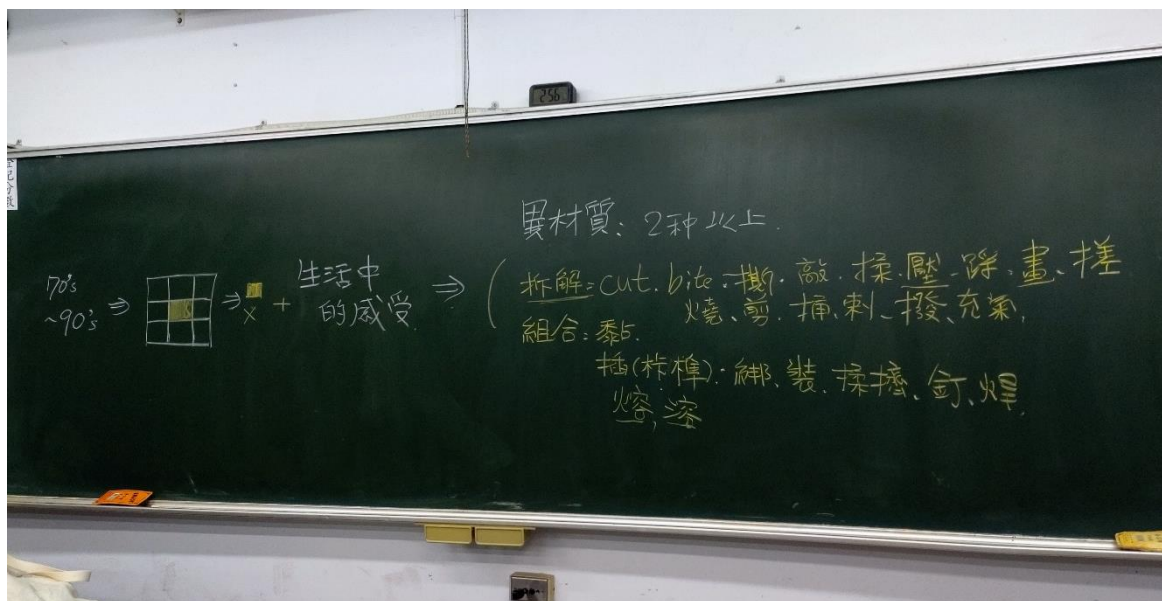 2:56
登記分數
異材質: 2种以上.
70's
~90's ⇒
⇒ x +
生活中
的感受 ⇒
拆解: cut. bite. 撕. 敲. 揉. 壓. 踩. 畫、搓
燒、剪、捅、刺、撥、充氣,
組合: 黏.
插(卡榫). 綁、裝、揉擠、釘、焊,
熔, 溶